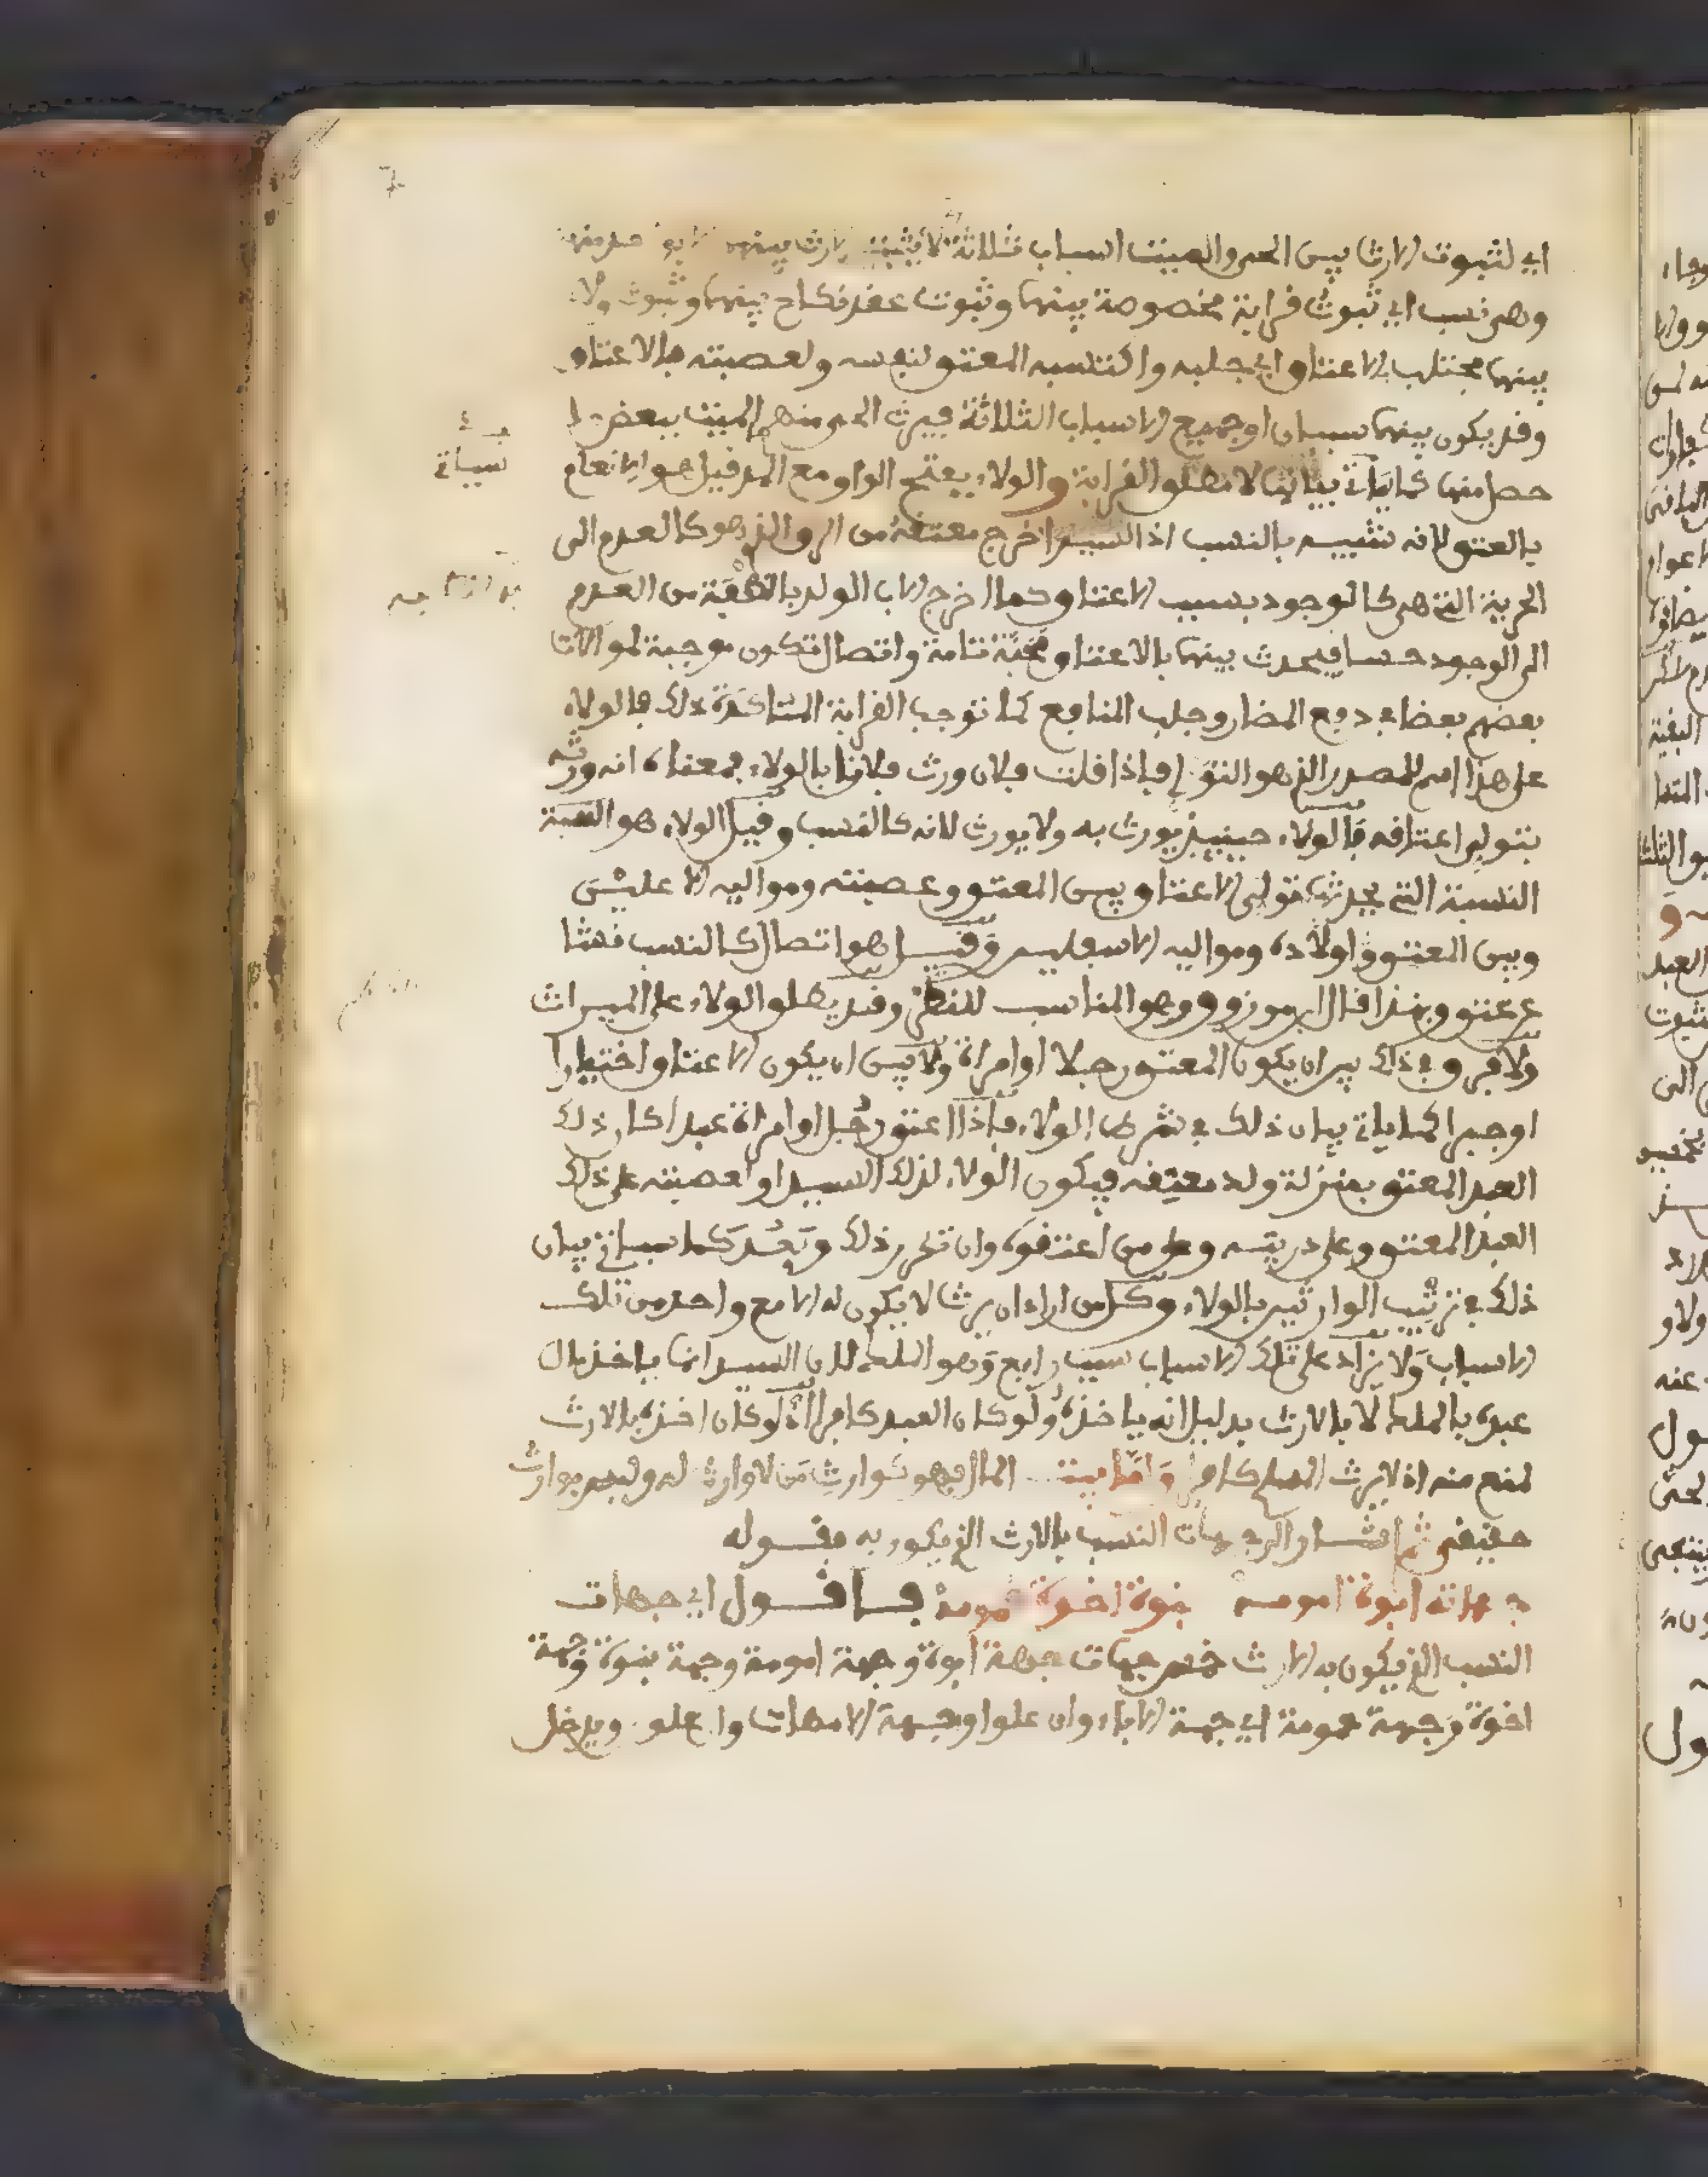 اي لثبوت الارث بين الحي والميت اسباب ثلاثة لا يثبت الارث بينهما
وهي نسب اي ثبوت قرابة مخصوصة بينهما وثبوت عقد نكاح بينهما وثبوت ولاء
بينهما مجتلب بالاعتاق اي جلبه واكتسبه المعتق لنفسه ولعصبته بالاعتاق
وقد يكون بينهما سببان او جميع الاسباب الثلاثة فيرث الحي منهم الميت ببعض
حصل منها كما ياتي بيانه لا مطلق القرابة والولاء بفتح الواو مع المد قيل هو الانعام
بالعتق لانه شبيه بالنسب اذ السيد اخرج معتقه من الرق الذي هو كالعدم الى
الحرية التي هي كالوجود بسبب الاعتاق وكما اخرج الاب الولد بالنطفة من العدم
الى الوجود حسا فيحدث بينهما بالاعتاق محبة تامة واتصال تكون موجبة لموالات
بعضهم بعضا في دفع المضار وجلب المنافع كما توجب القرابة المتاكدة ذلك فالولاء
على هذا اسم للمصدر الذي هو التولي فاذا قلت فلان ورث فلانا بالولاء فمعناه انه ورثه
بتولي اعتاقه فالولاء حينيذ يورث به ولا يورث لانه كالنسب وقيل الولاء هو النسبة
النسبة التي يحدثها تولي الاعتاق بين المعتق وعصبته ومواليه الاعليين
وبين المعتق واولاده ومواليه الاسفلين وقيل هو اتصال كالنسب نشا
عن عتق وبهذا قال ابن مرزوق وهو المناسب للنظم وقد يطلق الولاء على الميراث
ولا فرق في ذلك بين ان يكون المعتق رجلا او امراة ولا بين ان يكون الاعتاق اختيارا
او جبرا كما ياتي بيان ذلك في شرط الولاء فاذا اعتق رجل او امراة عبدا كان ذلك
العبد المعتق بمنزلة ولد معتقه فيكون الولاء لذلك السيد او لعصبته على ذلك
العبد المعتق وعلى ذريته وعلى من اعتقوه وان تكرر ذلك وبعد كما سياتي بيان
ذلك في ترتيب الوارثين بالولاء وكل من اراد ان يرث لا يكون له الا مع واحد من تلك
الاسباب ولا يزاد على تلك الاسباب سبب رابع وهو الملك لان السيد انما ياخذ مال
عبده بالملك لا بالارث بدليل انه ياخذه ولو كان العبد كافرا اذ لو كان اخذه بالارث
لمنع منه اذ لا يرث المسلم كافرا واما بيت المال فهو كوارث من لا وارث له وليس بوارث
حقيقي ثم اشار الى جهات النسب بالارث الذي يكون به بقوله
جهاته ابوة امومه بنوة اخوة عمومة فاقول اي جهات
النسب الذي يكون به الارث خمس جهات جهة ابوة وجهة امومة وجهة بنوة وجهة
اخوة وجهة عمومة اي جهة الاباء وان علوا وجهة الامهات وان علو ويدخل
سياتي